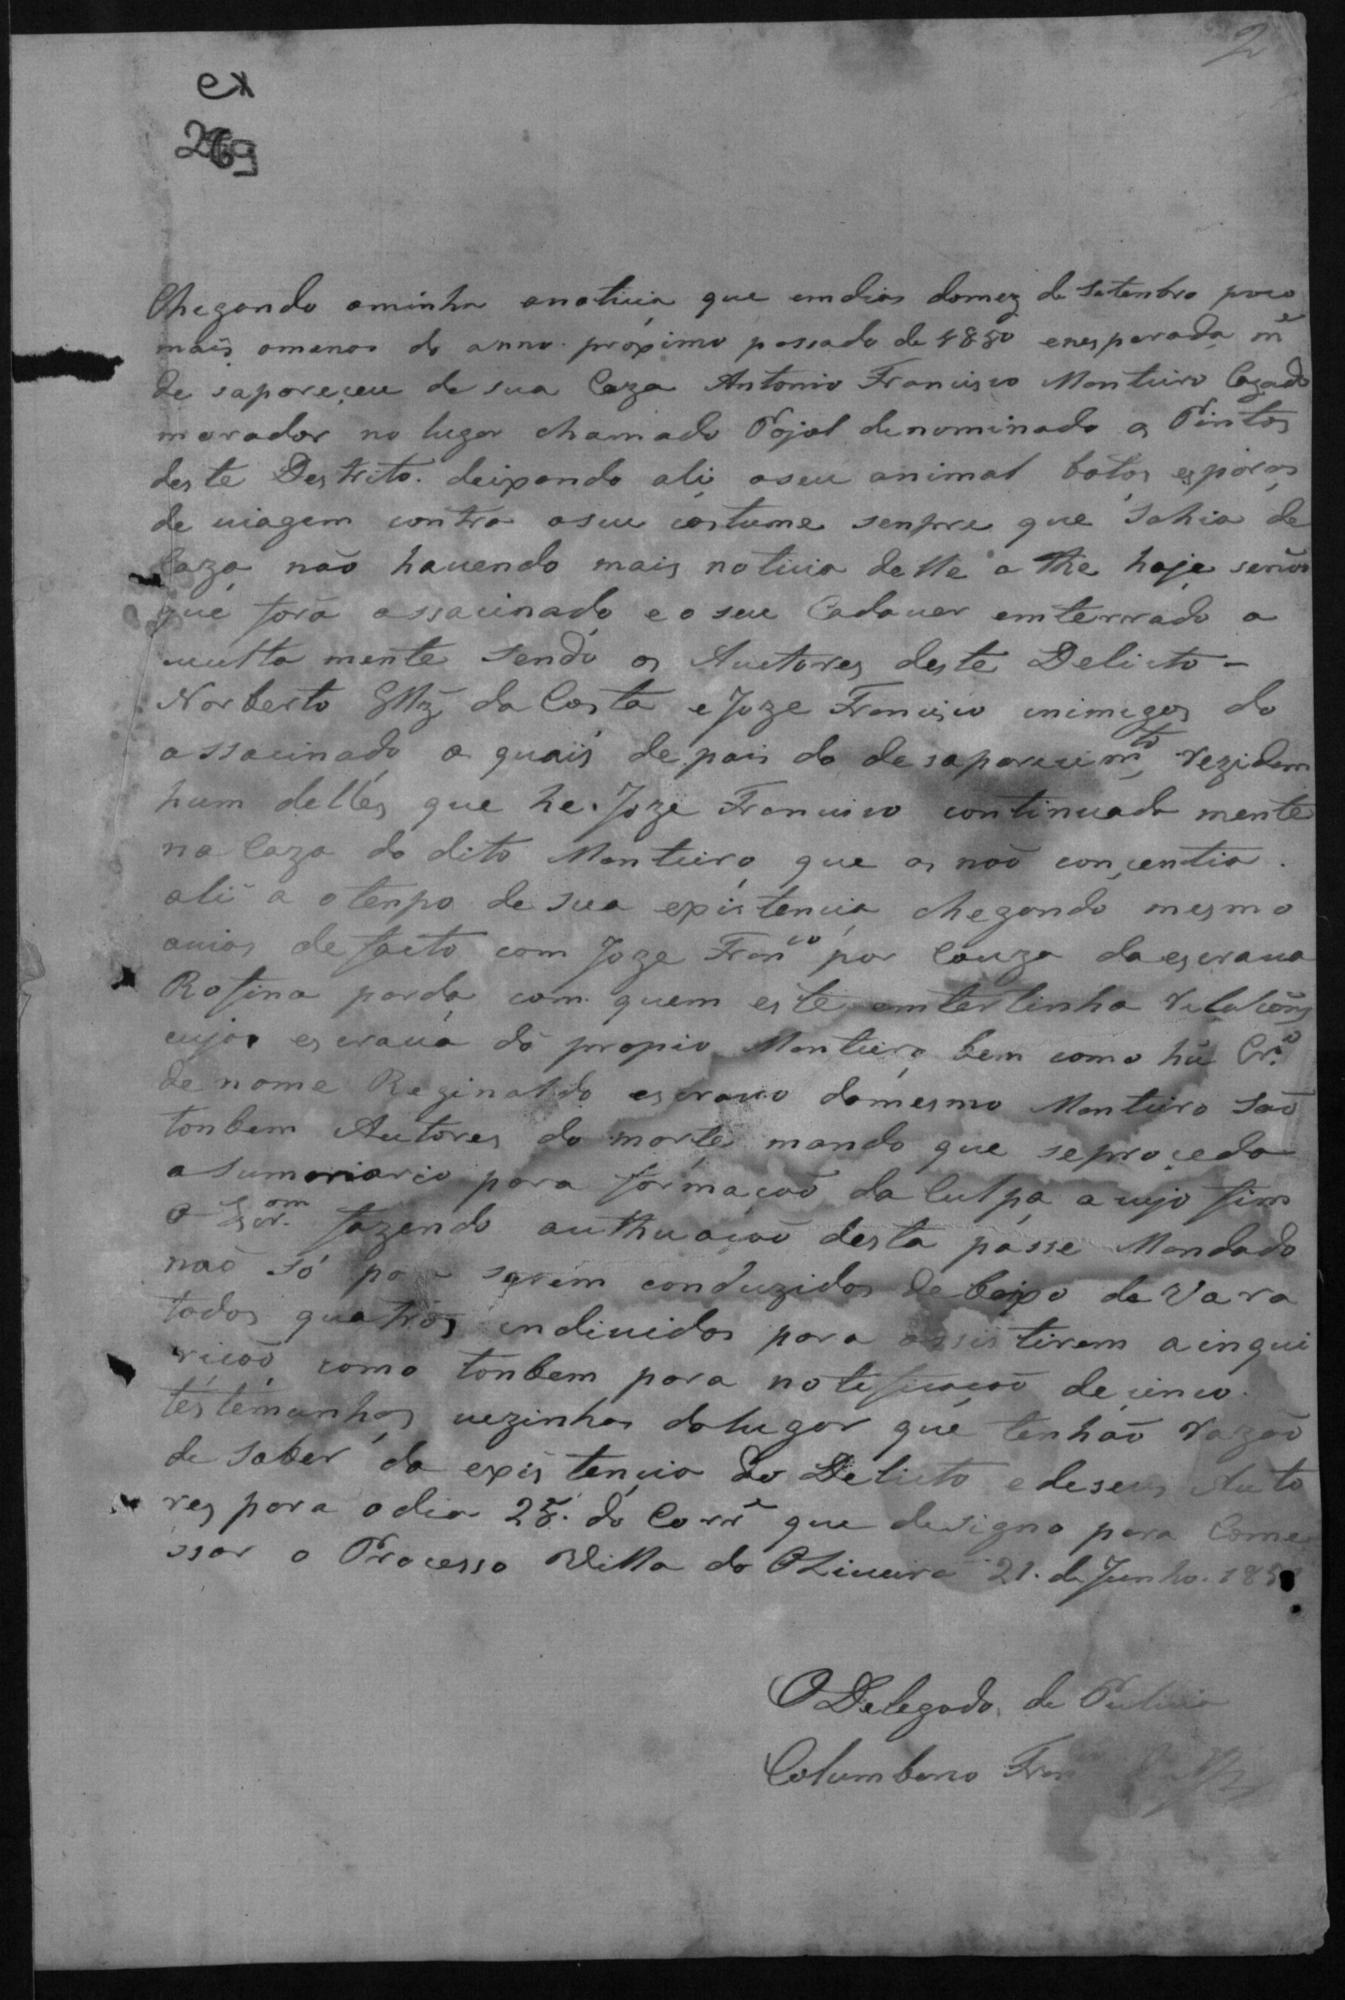 2
ex
269
Chegando aminha anoticia que emdias domez de Setenbro pouco
mais omenos do anno proximo passado de 1850 enesperada m.e
de sapareçeu de sua Caza Antonio Francisco Monteiro Cazado
morador no lugar chamado Pojal denominado os Pintos
deste Destrito. deixando ali oseu animal botas esporas
de uiagem contra oseu costume senpre que Sahia de
Caza não hauendo mais noticia delle a the hoje senão
que fora assacinado e o seu Cadauer emterrado o
cultta mente Sendo os Auctores deste Delicto -
Norberto Glz da Costa e Joze Francisco inimigos do
assacinado os quais depois do desaparecim.to rezidem
hum delles que he Joze Francisco continuada mente
na Caza do dito Monteiro que os não conçentia
ali a o tenpo de sua existencia chegando mesmo
auias de facto com Joze Fran.co por Cauza da escraua
Rofina parda com quem este emtertinha relacões
cuja escraua do propio Monteiro bem como hũ Cr.o
de nome Reginaldo escrauo domesmo Monteiro São
tonbem Autores da morte mando que seproçeda
a sumariario para formação da Culpa a cujo fim
O Escr.am fazendo authuacão desta passe Mandado
não Só pa serem conduzidos de baixo de Vara
todos quatros indiuidos para assistirem ainqui
rição como tonbem para notificacão decinco
testemunhas uezinhas dolugar que tenhão razão
de saber da existencia do Delicto edeseus Auto
res para odia 25. do Corr.e que designo para Come
ssar o Processo Villa do Oliueira 21. de Junho. 185
O Delegado de Pulicia
Columbano Fran